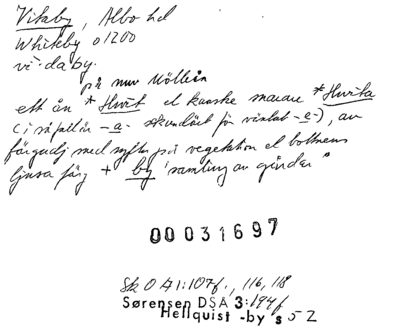 Vitaby, Albo hd
Whitæby o 1200
vi·da by.
på nuv Möllein
ett ån *Hvit el kanske snarare *Hvita
(i så fall är -a- sekundärt för väntat -e-), av
färgadj med syftn på vegetation el bottnens
ljusa färg + by 'samling av gårdar'
00031697
Sk O A1:107f., 116, 118
Sørensen DSA 3:194f
Hellquist -by s 52